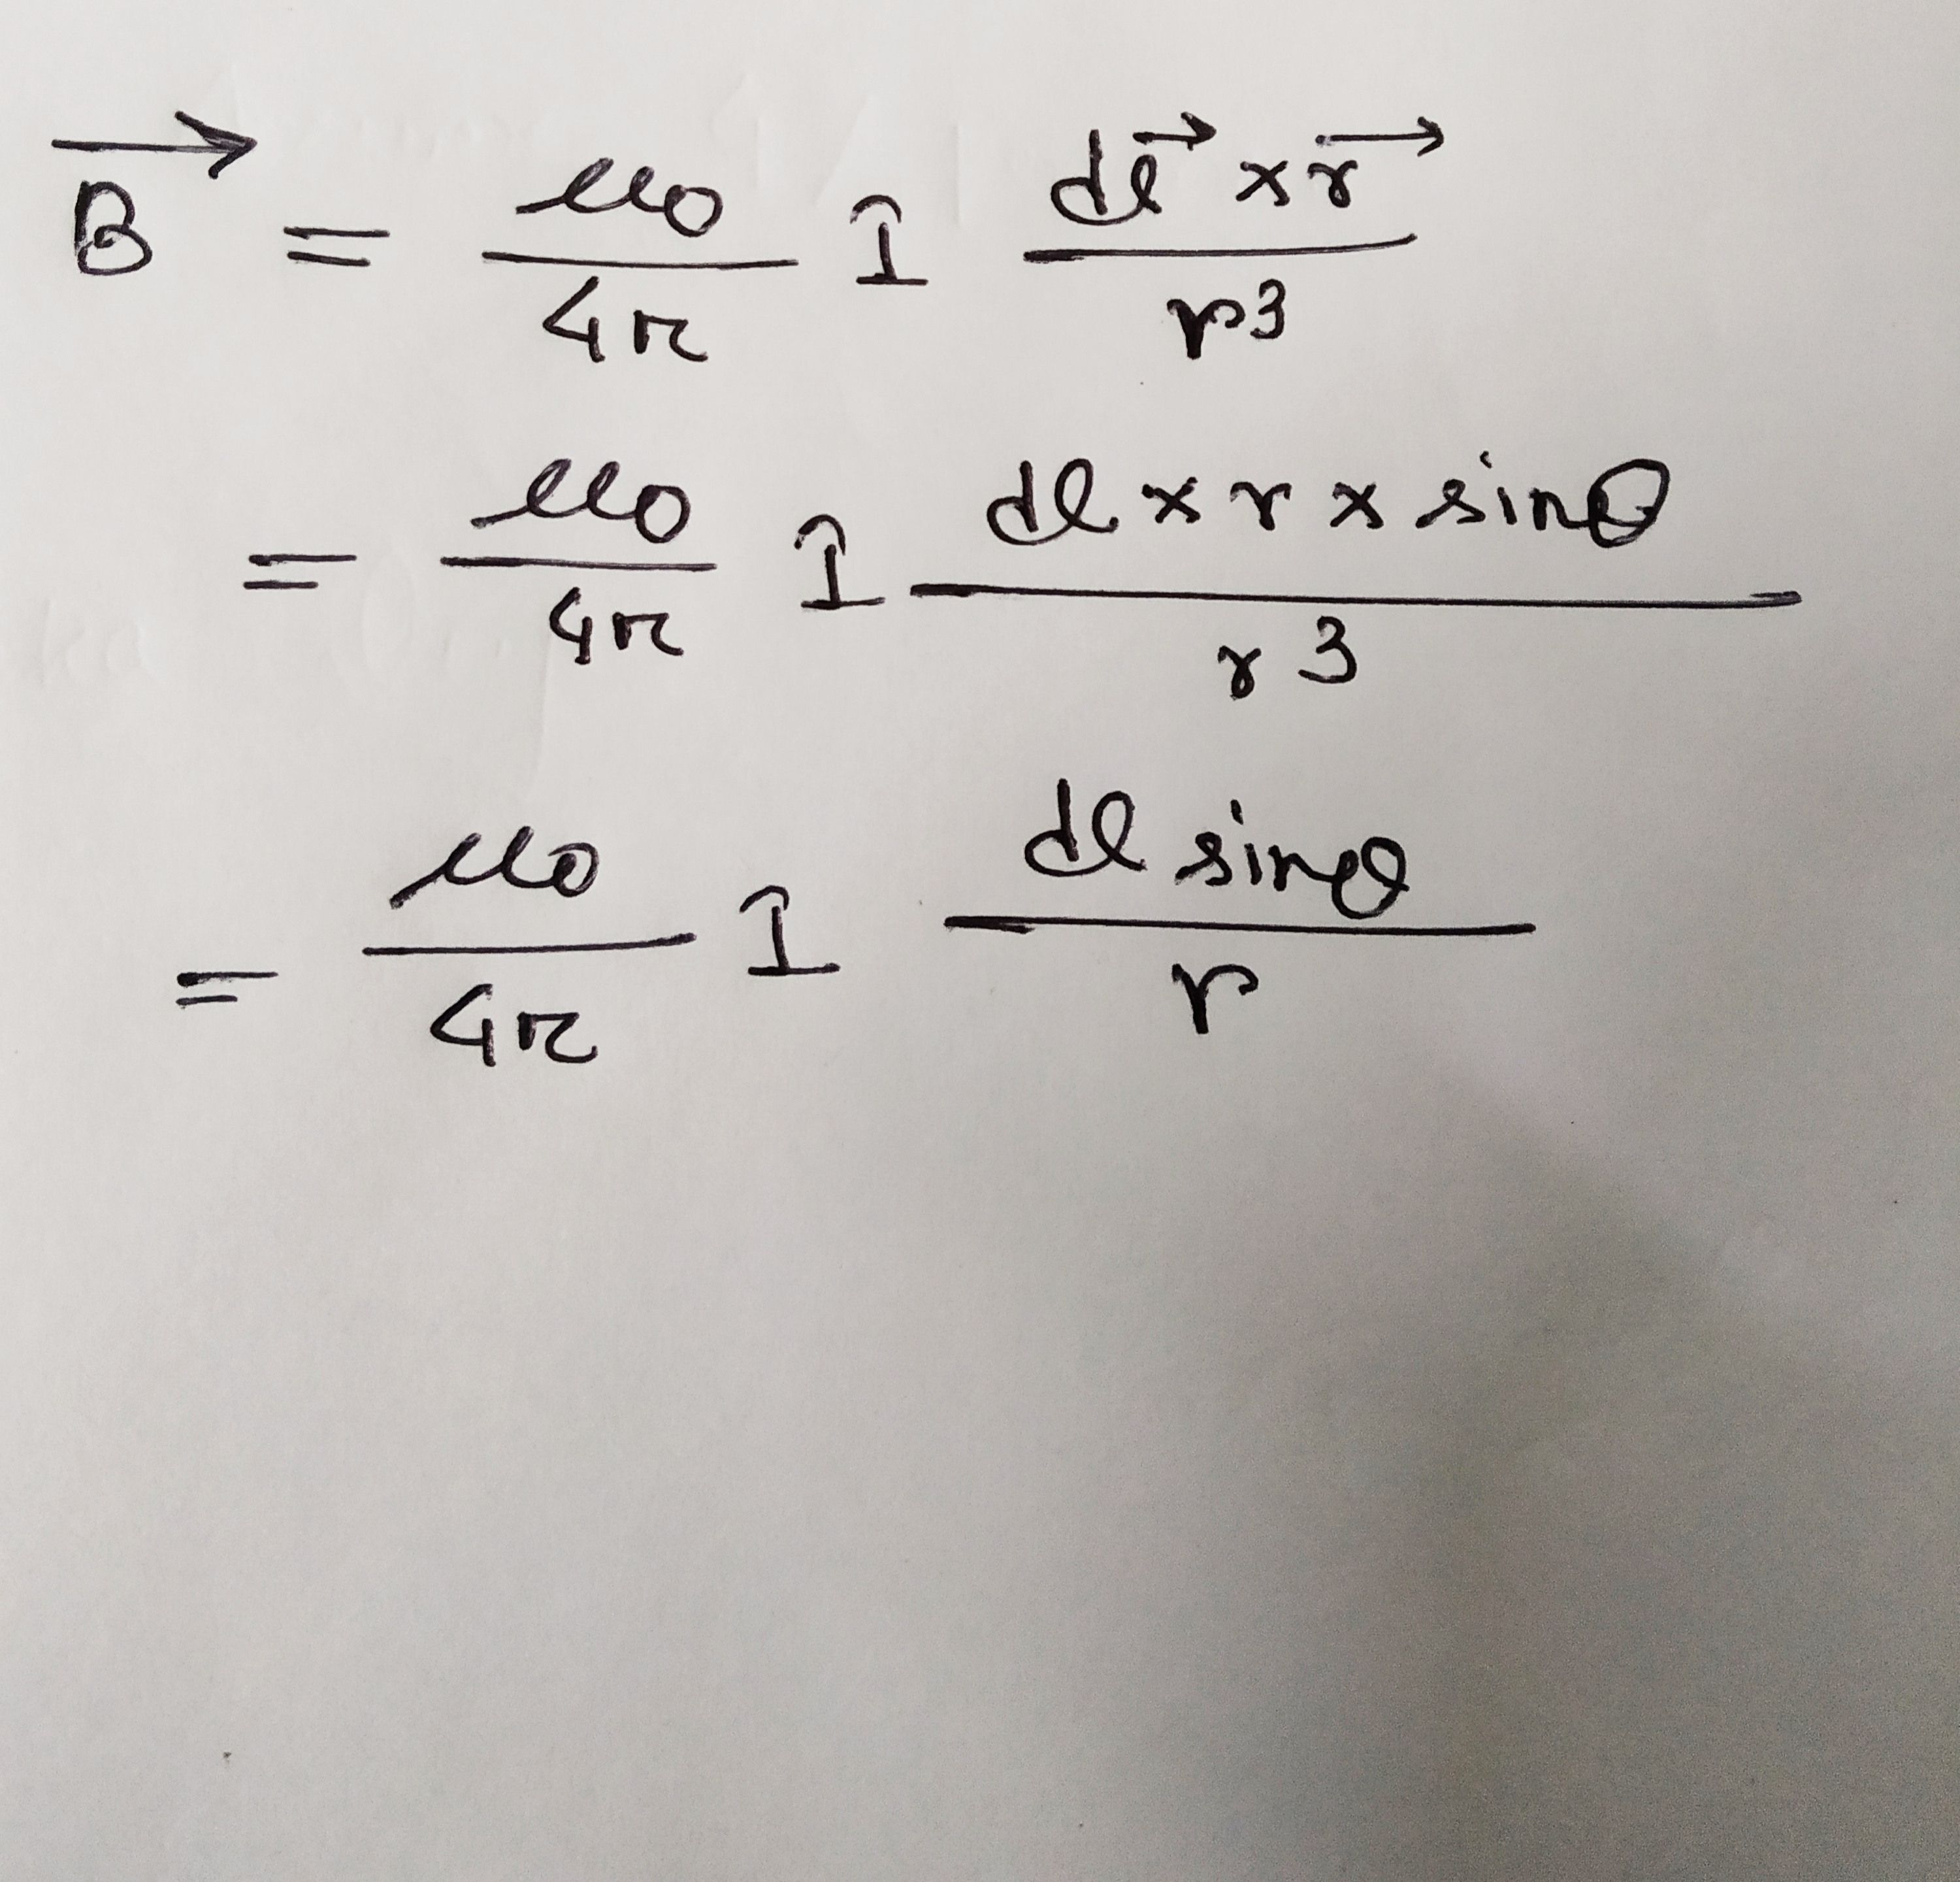 $\overrightarrow{B} = \frac{\mu_0}{4\pi} I \frac{d\overrightarrow{l} \times \overrightarrow{r}}{r^3}$
$= \frac{\mu_0}{4\pi} I \frac{dl \times r \times \sin\theta}{r^3}$
$= \frac{\mu_0}{4\pi} I \frac{dl \sin\theta}{r}$